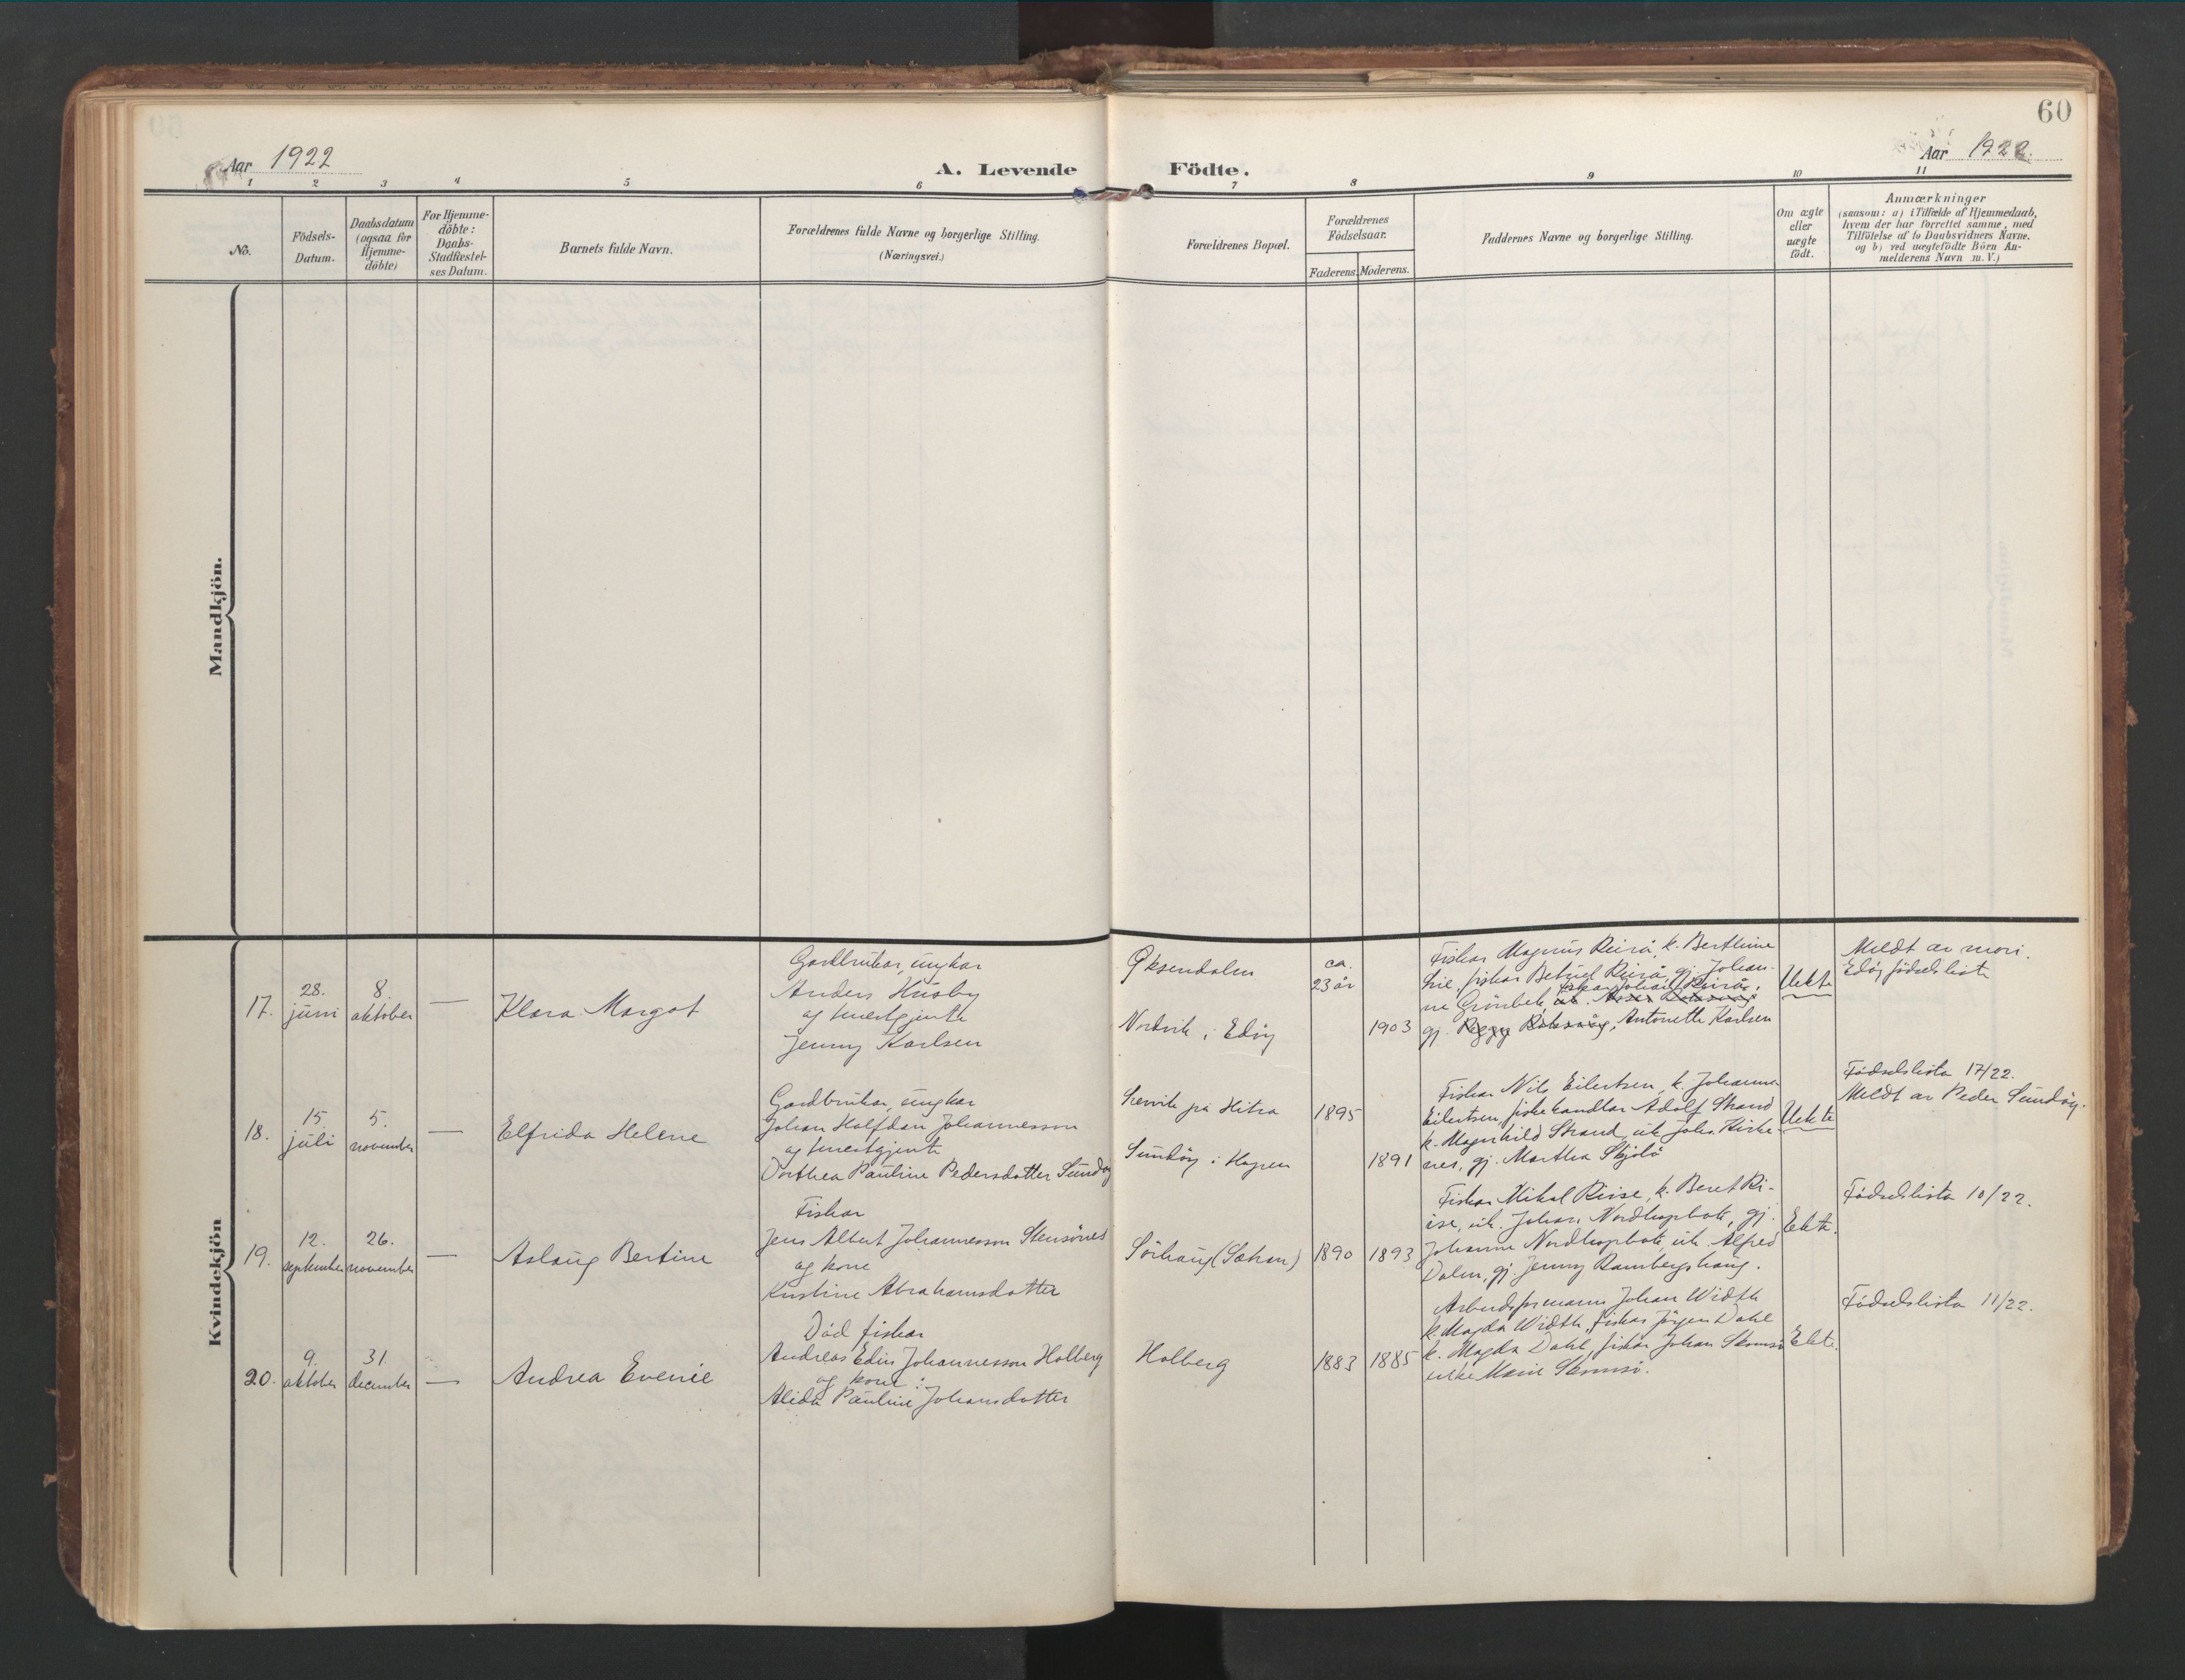 60
Aar 1922
A. Levende Födte.
Aar 1922.
1 2 3 4 5 6 7 8 9 10 11
No.
Födsels-
Datum.
Daabsdatum
(ogsaa for
Hjemme-
döbte)
For Hjemme-
döbte:
Daabs-
Stadfæstel-
ses Datum.
Barnets fulde Navn.
Forældrenes fulde Navne og borgerlige Stilling.
(Næringsvei.)
Forældrenes Bopæl.
Forældrenes
Födselsaar.
Faderens. Moderens.
Faddernes Navne og borgerlige Stilling.
Om ægte
eller
uægte
födt.
Anmærkninger
(saasom: a) i Tilfælde af Hjemmedaab,
hvem der har forrettet samme, med
Tilföielse af to Daabsvidners Navne,
og b) ved uægtefödte Börn An-
melderens Navn m. V.)
Mandkjön.
Kvindekjön
17.
28.
juni
8.
oktober
—
Klara Margot
Gardbrukar, ungkar
Anders Husby
og
Jenny Karlsen
Öksendalen
Nordvik i Edöy
ca.
23 år
1903
Fiskar Magnus k. Berthine
fiskar gj. Johan-
ne Grönbek,
gj. Antonette Karlsen
Uekte
Meldt av mori.
Edöy födselsliste
18.
15.
juli
5.
november
—
Elfrida Helene
Gardbrukar, ungkar
Johan Halfdan Johannesson
og
Dorthea Pauline Pedersdotter Sundöy
på Hitra
Sundöy i Hopen
1895
1891
Fiskar Nils Eilertsen, k. Johanna
Eilertsen, fiskehandlar Adolf Strand
k. Magnhild Strand, uk. Johs. Kirke-
nes, gj. Martha Skjölö
Uekte
Födselslista 17/22.
Meldt av Peder Sundöy.
19.
12.
september
26.
november
—
Aslaug Bertine
Fiskar
Jens Albert Johannesson Stensönes
og kone
Kristine Abrahamsdotter
Sörhaug
1890
1893
Fiskar Mikal k. Beret Ri-
ise, uk. Johan gj.
Johanne uk. Alfred
Dalen, gj. Jenny Rambergshaug.
Ekte.
Födselslista 10/22.
20.
9.
oktober
31.
december
—
Andrea Evenie
Död fiskar
Andreas Edin Johannesson Holberg
og kone:
Alida Pauline Johansdotter
Holberg
1883
1885
Arbeidsformann Johan Width
k. Magda Width, fiskar Jörgen Dahl
k. Magda Dahl, fiskar Johan Skomsö
Marie Skomsö.
Ekte.
Födselslista 11/22.